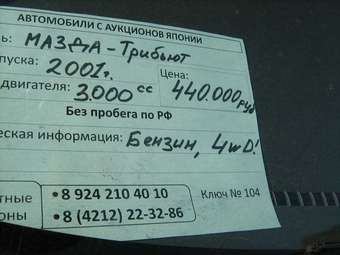 АВТОМОБИЛИ С АУКЦИОНОВ ЯПОНИИ
ь: МАЗДА-Трибьют
пуска: 2001г. Цена:
двигателя: 3.000 сс 440.000 руб
Без пробега по РФ
еская информация: Бензин, 4wD!
тные • 8 924 210 40 10 Ключ № 104
оны • 8 (4212) 22-32-86